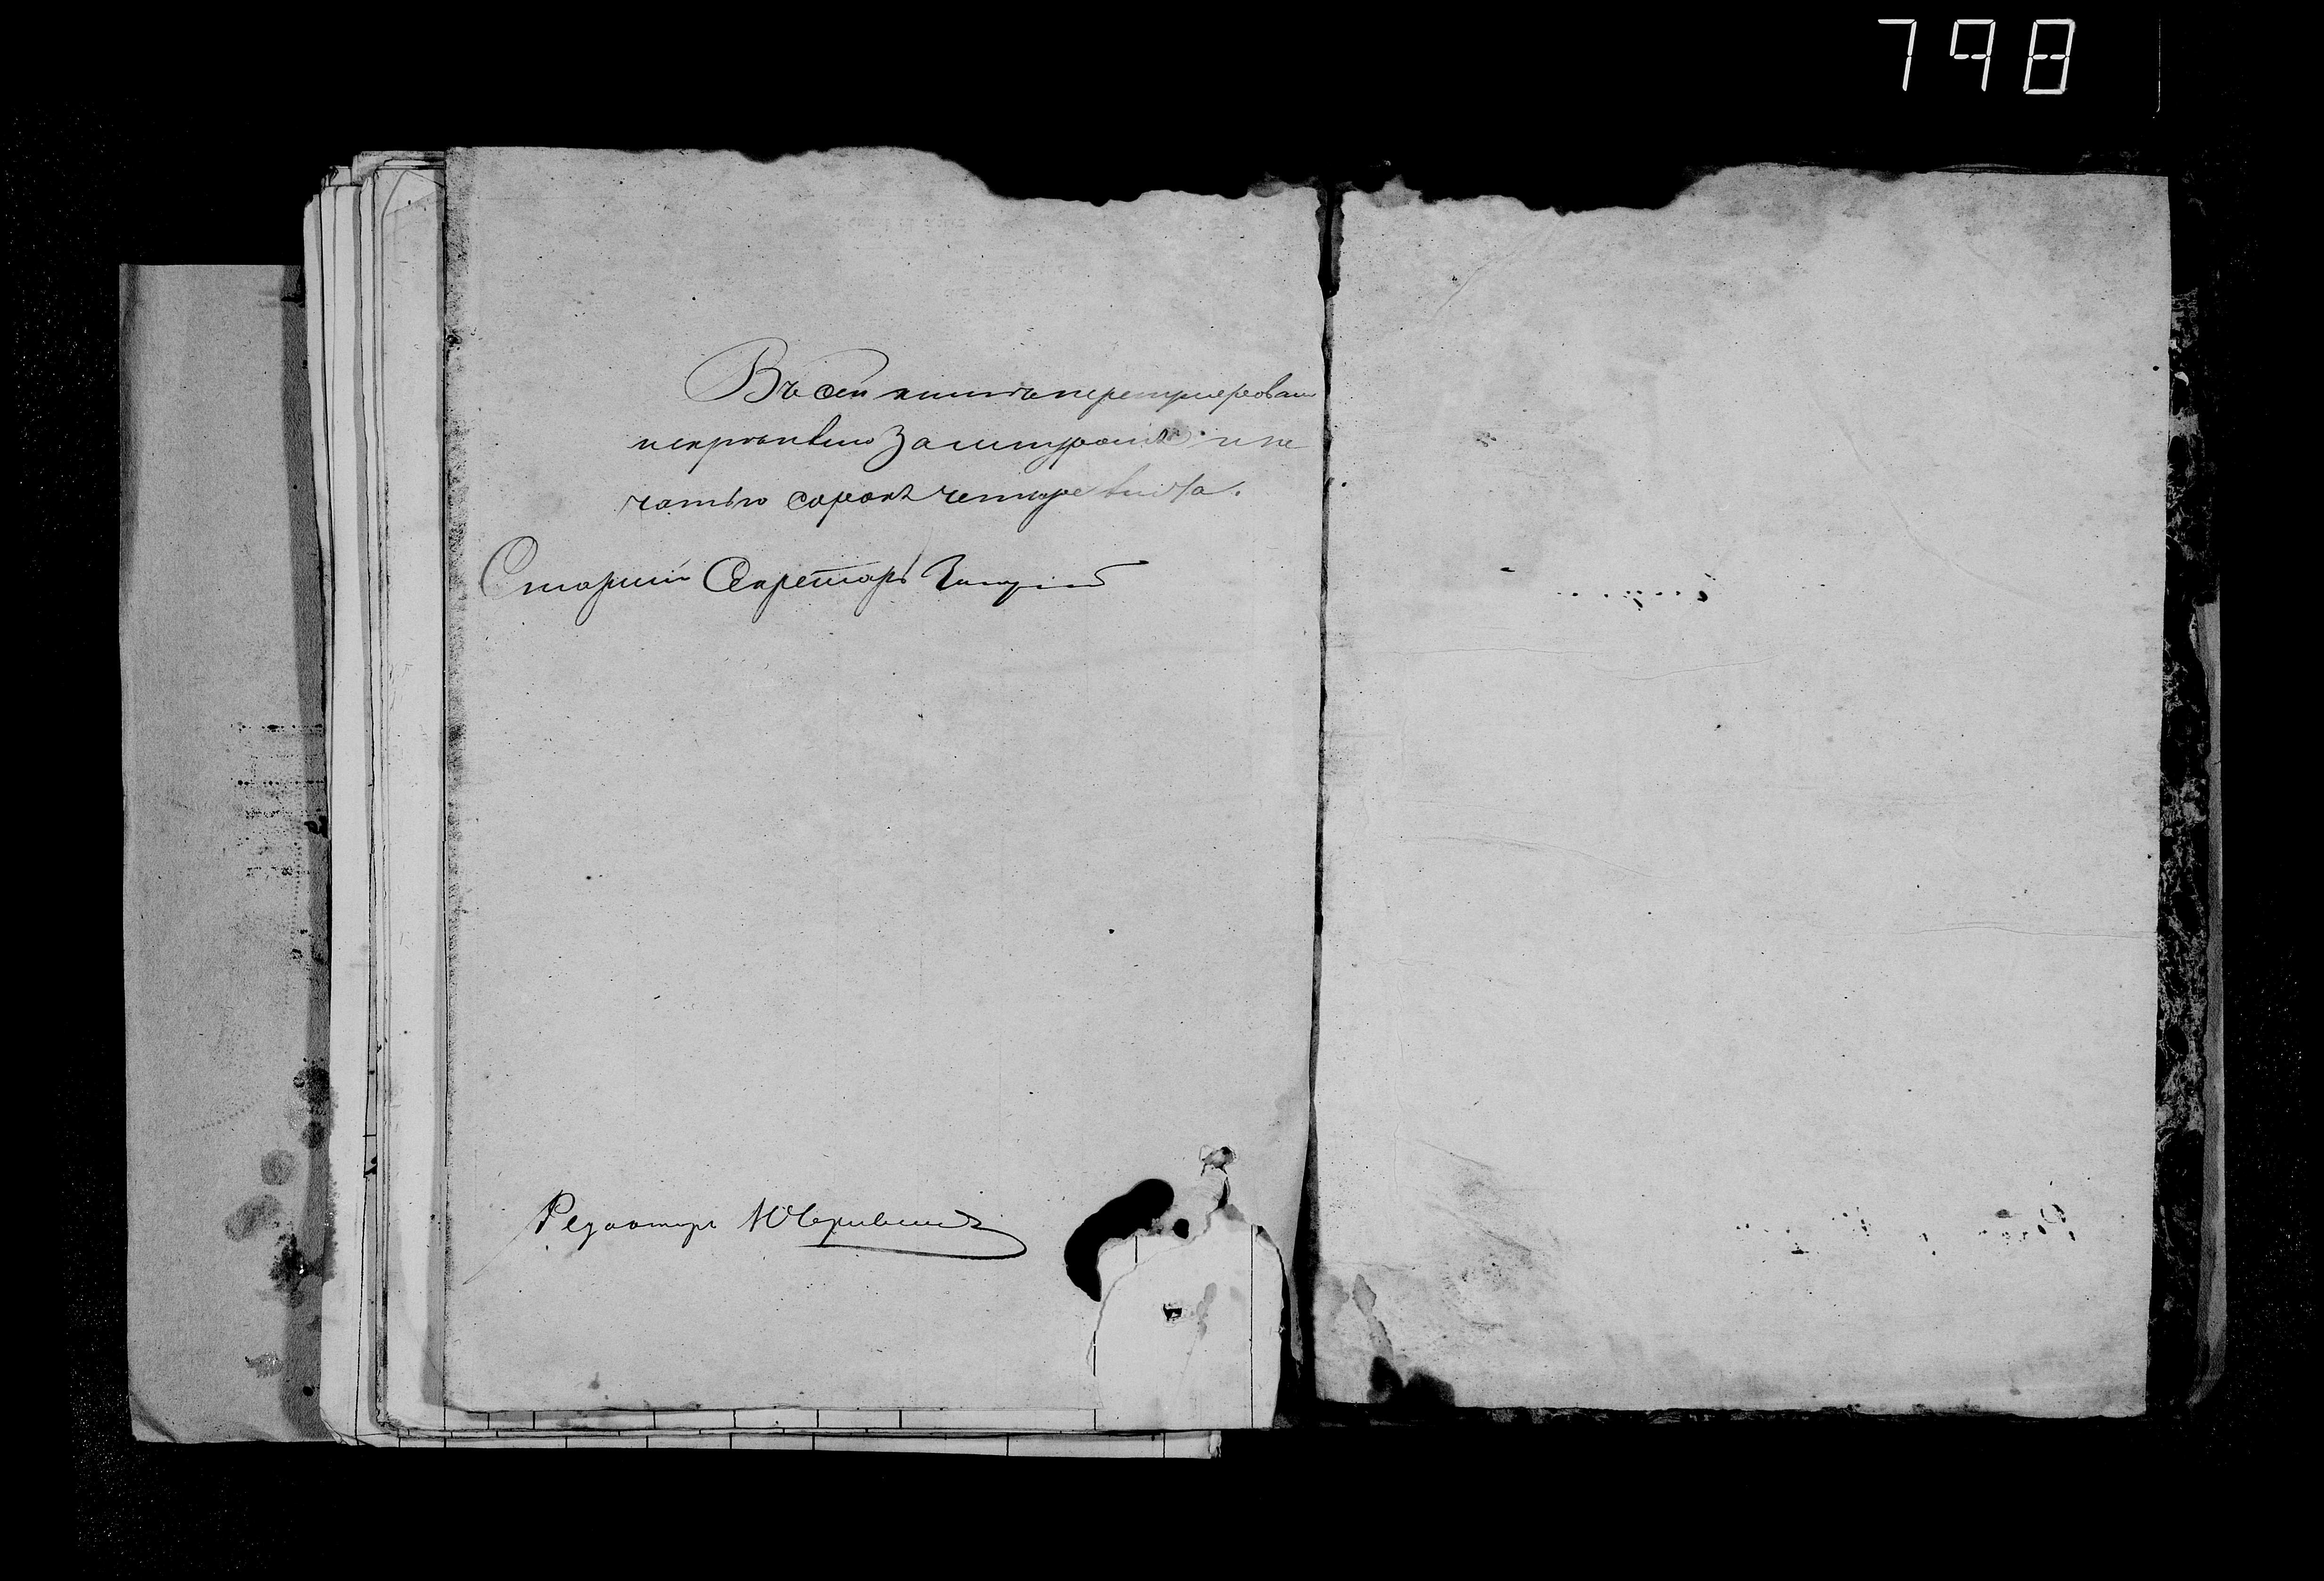 798
Въ сей книгѣ перенумерованныхъ
и скрѣпленно за шнуромъ и пе
чатью сорокъ четыре листа.
Старшій Секретарь
Редакторъ